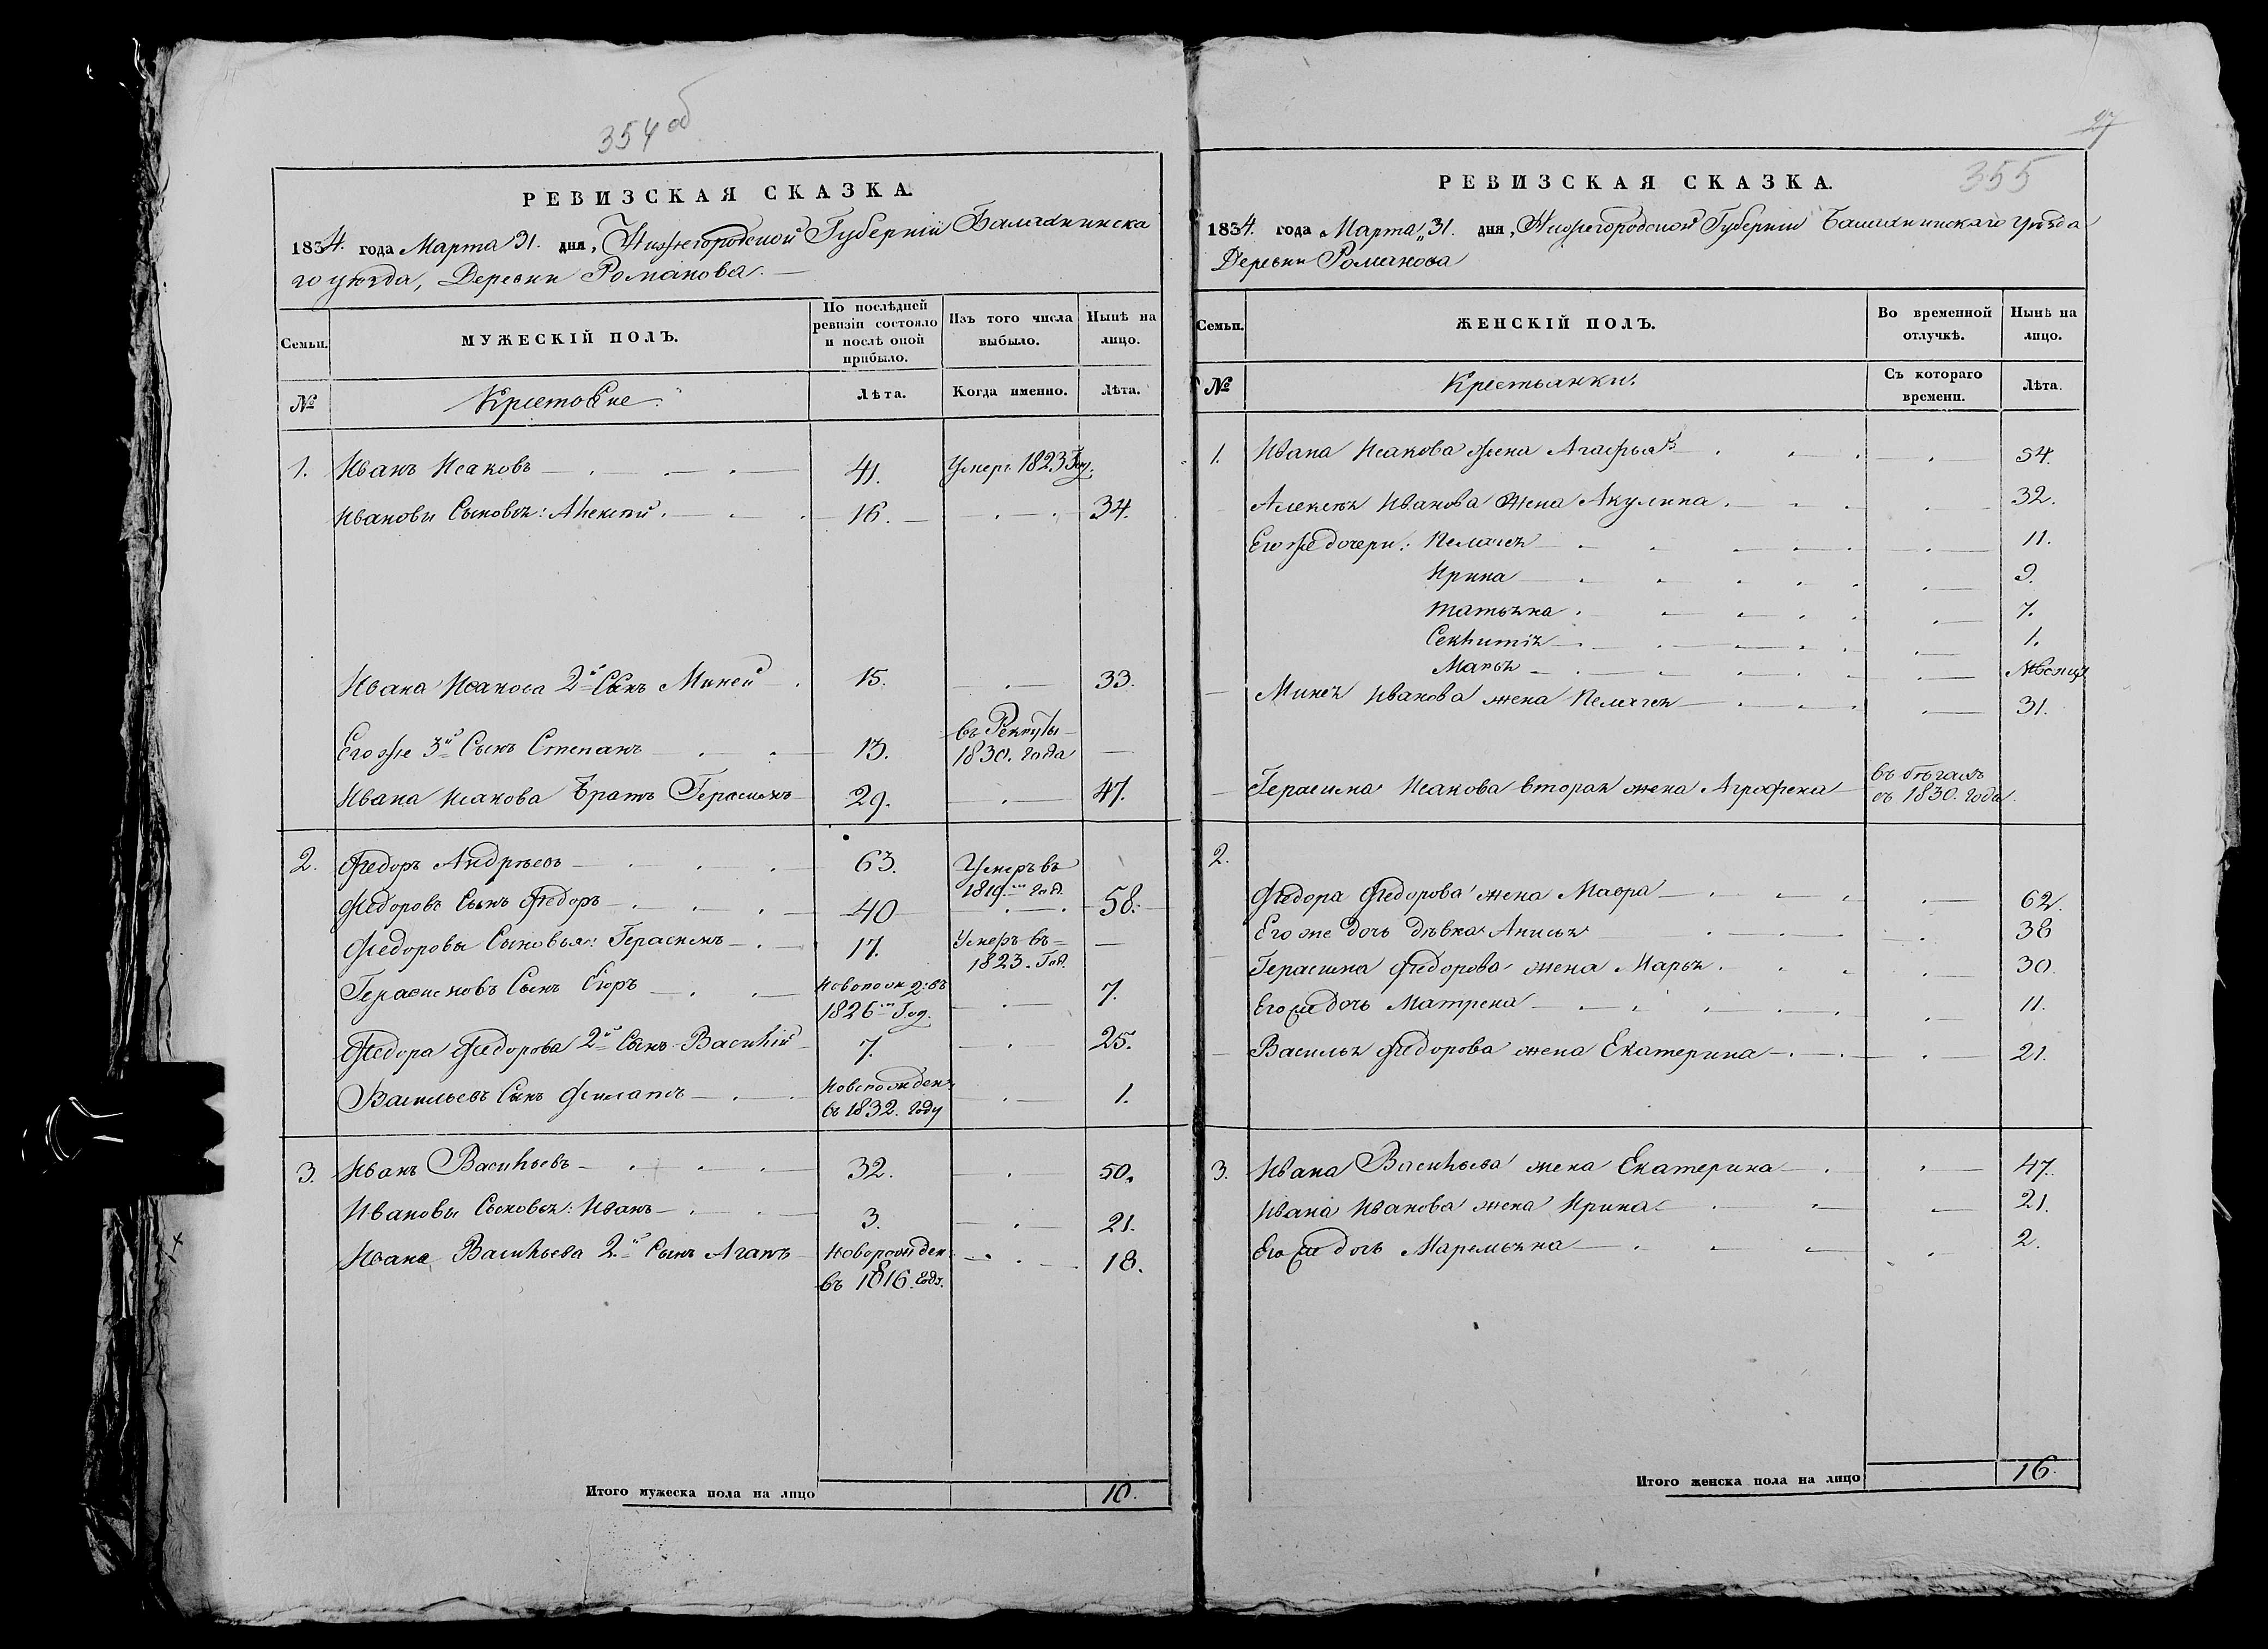 354 об
РЕВИЗСКАЯ СКАЗКА.
1834. года Марта 31. дня, Нижегородской Губерніи Балахнинска
го уезда, Деревни Романова.
Семьи.
МУЖЕСКІЙ ПОЛЪ.
По послѣдней ревизіи состояло и послѣ оной прибыло.
Изъ того числа выбыло.
Нынѣ на лицо.
№
Лѣта.
Когда именно.
Лѣта.
1. Иванъ Исаковъ 41. Умеръ 1823 Год.
Ивановы Сыновья: Алексѣй 16. 34.
Ивана Исакова 2й Сынъ Миней 15. 33.
Егоже 3й Сынъ Степанъ 13. въ Рекруты 1830. года
Ивана Исакова Братъ Герасимъ 29. 47.
2. Федоръ Андрѣевъ 63. Умеръ въ 1819 год.
Федоровъ Сынъ Федоръ 40 58.
Федоровы Сыновья: Герасимъ 17. Умеръ въ 1823. Год.
Герасимовъ Сынъ Егоръ 1826 Год. 7.
Федора Федорова 2й Сынъ Василій 7. 25.
Васильевъ Сынъ Филатъ новорожден въ 1832. году 1.
3. Иванъ Васильевъ 32. 50.
Ивановы Сыновья: Иванъ 3. 21.
Ивана Васильева 2й Сынъ Агапъ новорожден: въ 1816. годъ. 18.
Итого мужеска пола на лицо 10.
27
355
РЕВИЗСКАЯ СКАЗКА.
1834. года Марта 31. дня, Нижегородской Губерніи Балахнинскаго уезда
Деревни Романова
Семьи.
ЖЕНСКІЙ ПОЛЪ.
Во временной отлучкѣ.
Нынѣ на лицо.
№
Крестьянки.
Съ котораго времени.
Лѣта.
1. Ивана Исакова жена Агафья 54.
Алексѣя Иванова жена Акулина 32.
Егоже дочери: Пелагея 11.
Ирина 9.
Татьяна 7.
1.
Марья Мѣсяца
Минея Иванова жена Пелагея 31.
Герасима Исакова вторая жена Аграфена въ бѣгахъ съ 1830. года
2.
Федора Федорова жена Мавра 62.
Его же дочь дѣвка Анисья 38
Герасима Федорова жена Марья 30.
Егоже дочь Матрена 11.
Василья Федорова жена Екатерина 21.
3. Ивана Васильева жена Екатерина 47.
Ивана Иванова жена Ирина 21.
Егоже дочь Маремьяна 2.
Итого женска пола на лицо 16.